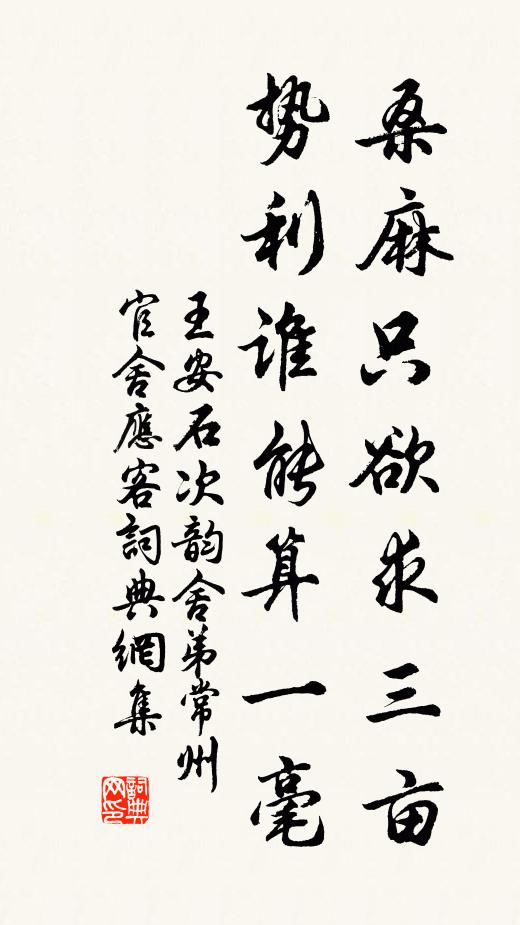 桑麻只欲求三亩
势利谁能算一毫
王安石次韵舍弟常州
官舍應客詞典網集
詞典
网印